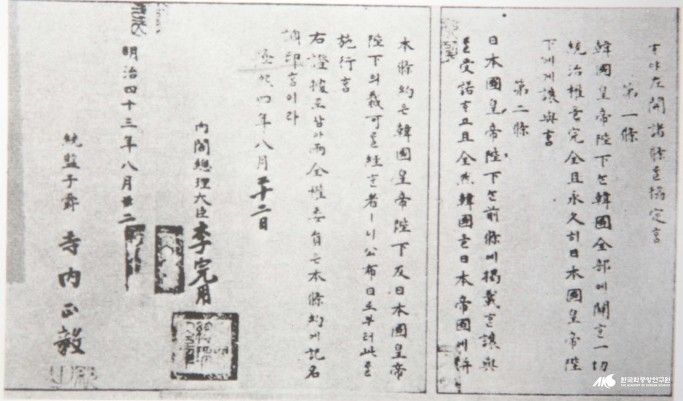 ᄒᆞ야左開諸條를協定홈
第一條
韓國皇帝陛下는韓國全部에關ᄒᆞᆫ一切
統治權을完全且永久히日本國皇帝陛
下에게讓與홈
第二條
日本國皇帝陛下는前條에揭載ᄒᆞᆫ讓與
를受諾ᄒᆞ고且全然韓國을日本帝國에併
本條約은韓國皇帝陛下及日本國皇帝
陛下의裁可를經ᄒᆞᆫ者ㅣ니公布日로부터此를
施行홈
右證據로삼아兩全權委員은本條約에記名
調印홈이라
隆熙四年八月二十二日
內閣總理大臣李完用
明治四十三年八月廿二
統監子爵寺內正毅
한국학중앙연구원